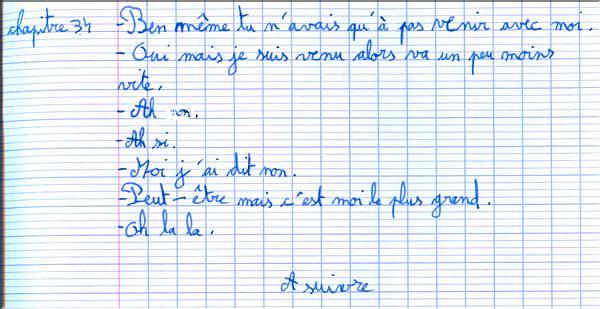 chapitre 34 -Ben même tu n'avais qu'à pas venir avec moi.
- Oui mais je suis venu alors va un peu moins
vite.
- Ah non.
-Ah si.
-Moi j'ai dit non.
-Peut-être mais c'est moi le plus grand.
-Oh la la.
A suivre